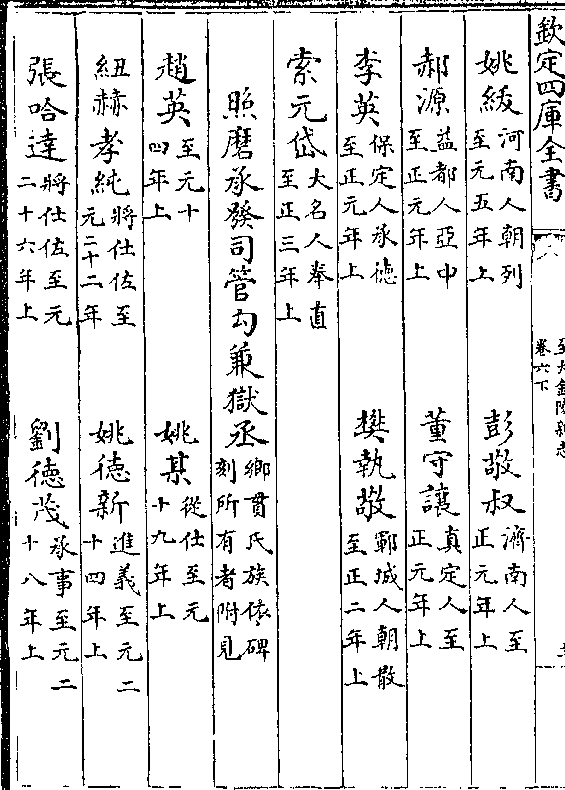 欽定四庫全書
至大金陵新志
卷六下
姚紱 河南人朝列至元五年上 彭敬叔 濟南人至正元年上
郝源 益都人亞中至正元年上 董守讓 真定人至正元年上
李英 保定人承德至正元年上 樊執敬 鄆城人朝散至正二年上
索元岱 大名人奉直至正三年上
照磨承發司管勾兼獄丞 鄉貫氏族依碑刻所有者附見
趙英 至元十四年上 姚某 從仕至元十九年上
紐赫孝純 將仕佐至元二十二年 姚德新 進義至元二十四年上
張哈達 將仕佐至元二十六年上 劉德茂 承事至元二十八年上